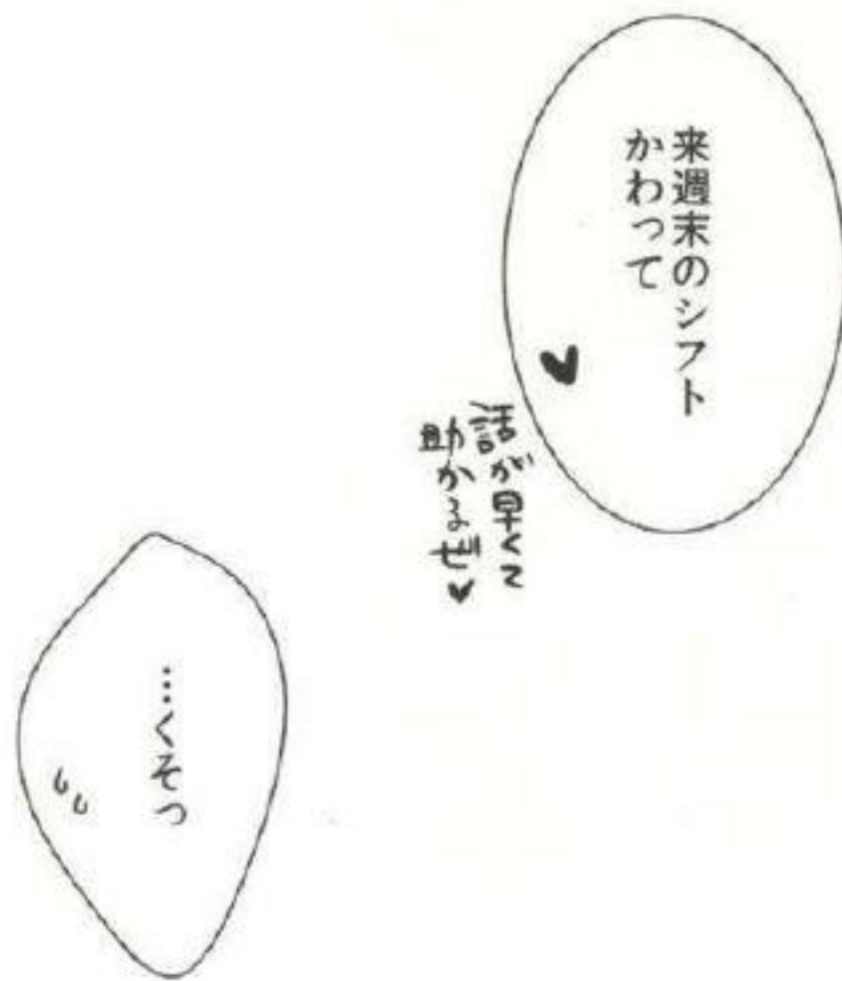 来週末のシフト
かわって♥
話が早くて
助かるぜ♥
…くそっ